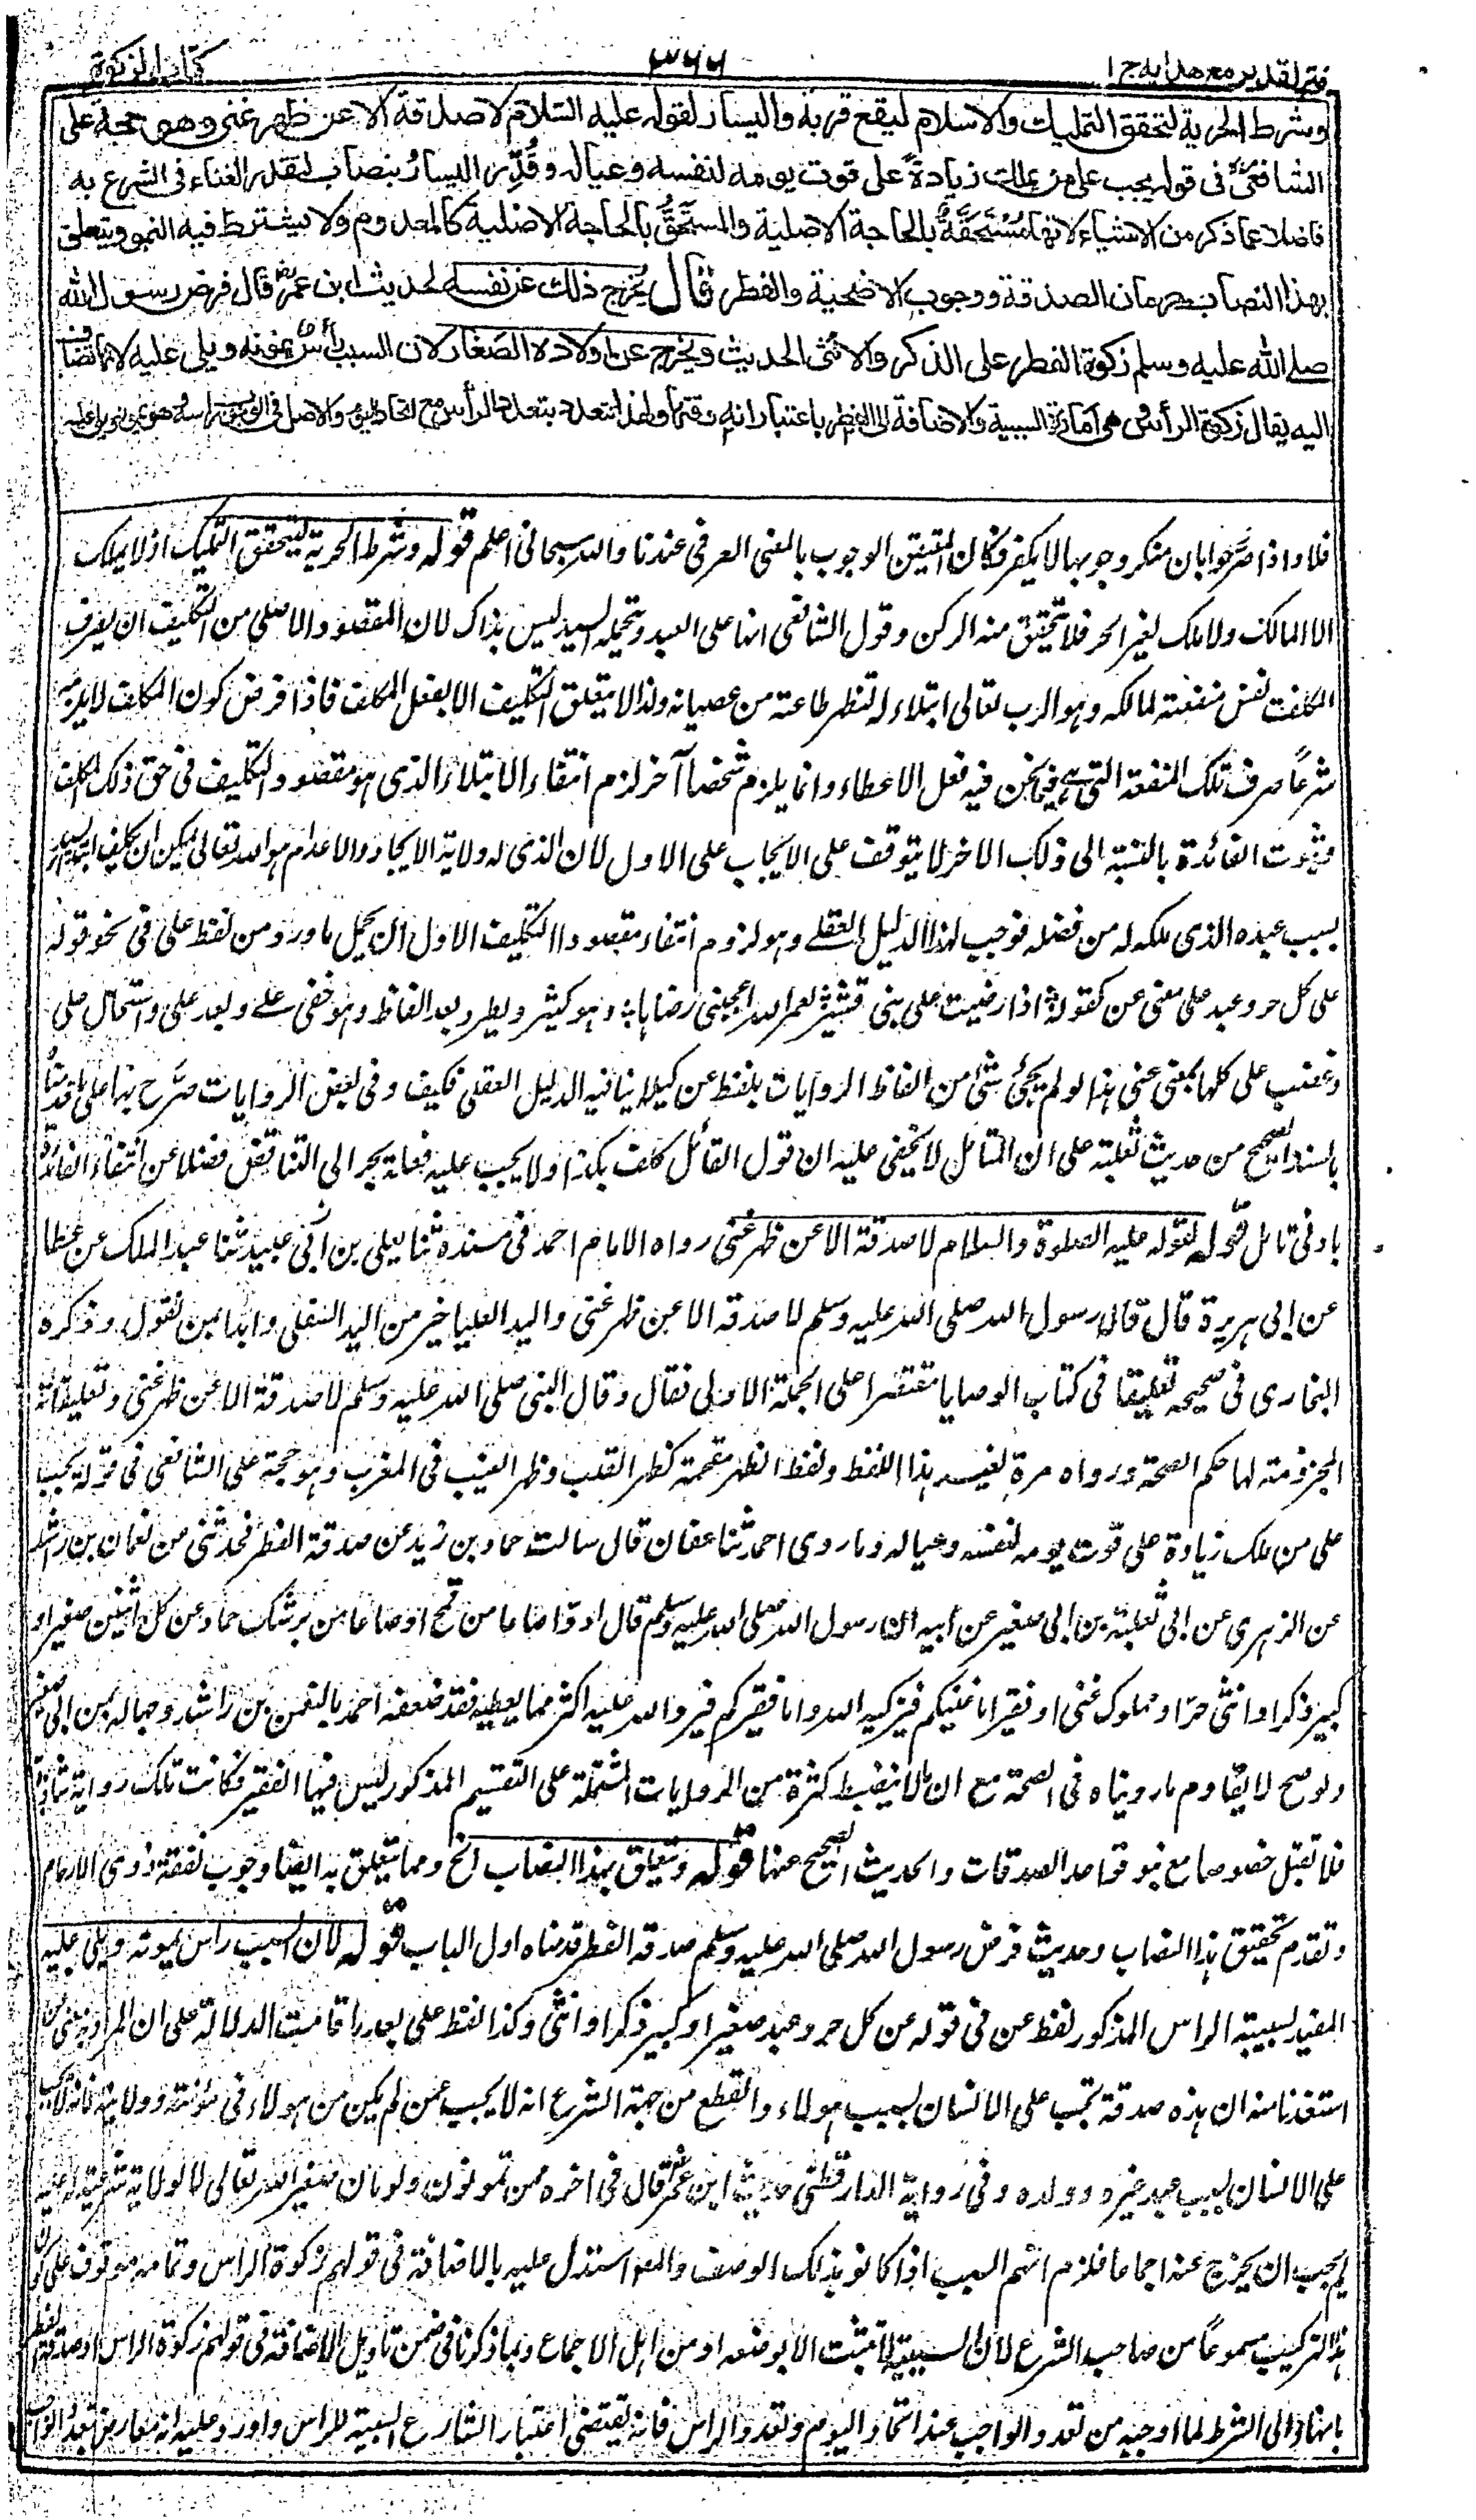 فتح القدير مع هدايه ج ۱
۳۶۶
كتاب الزكوة
وشرط الحرية لتحقق التمليك والاسلام ليقع قربة واليسار لقوله عليه السلام لا صدقة الا عن ظهر غنى وهو حجة على
الشافعي في قوله يجب على من يملك زيادة على قوت يومه لنفسه وعياله وقُدِّر اليسارُ بنصاب لتقدير الغناء في الشرع به
فاضلا عما ذكر من الاشياء لانها مُسْتَحَقَّةٌ بالحاجة الاصلية والمستَحَقُّ بالحاجة الاصلية كالمعدوم ولا يشترط فيه النمو ويتعلق
بهذا النصاب حرمان الصدقة ووجوب الاضحية والفطر قال يُخرج ذلك عن نفسه لحديث ابن عمر قال فرض رسول الله
صلے الله عليه وسلم زكوة الفطر على الذكر والانثى الحديث ويخرج عن اولاده الصغار لان السبب رأس يمونه ويلي عليه لانها تضاف
اليه يقال زكوة الرأس وهي امارة السببية والاضافة الى الفطر باعتبار انه وقته ولهذا تتعدد بتعدد الرأس مع اتحاد اليوم والاصل في الوجوب رأسه وهو يمونه ويلي عليه
فلا واذا صرّحوا بان منكر وجوبها لا يكفر فكان المتيقن الوجوب بالمعنى العرفي عندنا والله سبحانه اعلم قوله وشرط الحرية ليتحقق التمليك اذ لا يملك
الا المالك ولا ملك لغير الحر فلا يتحقق منه الركن وقول الشافعي انها على العبد ويتحمله السيد ليس بذاك لان المقصود الاصلي من التكليف ان يصرف
المكلف نفس منفعته لمالكه وهو الرب تعالى ابتلاء له لتظهر طاعته من عصيانه ولذا لا يتعلق التكليف الا بفعل المكلف فاذا فرض كون المكلف لا يلزمه
شرعاً صرف تلك المنفعة التي هي فيما نحن فيه فعل الاعطاء وانما يلزم شخصا آخر لزم انتفاء الابتلاء الذي هو مقصود التكليف في حق ذلك المكلف
وثبوت الفائدة بالنسبة الى ذلك الاخر لا يتوقف على الايجاب على الاول لان الذي له ولاية الايجاد والاعدام هو الله تعالى يمكن ان يكلف ابتداء السيد
بسبب عبده الذي ملكه له من فضله فوجب لهذا الدليل العقلے وهو لزوم انتفاء مقصود التكليف الاول ان يحمل ما ورد من لفظ على في نحو قوله
على كل حر وعبد على معنى عن كقوله اذا رضيت على بنى قشير لعمر الله اعجبنى رضاها وهو كثير ويطرد بعد الفاظ وهو خفى علے وبعد على واستحال على
وغضب على كلها بمعنى عنى هذا لو لم يجئ شئ من الفاظ الروايات بلفظ عن كيلا ينافيه الدليل العقلي فكيف وفى بعض الروايات صرّح بها على ما قدمناه
بالسند الصحيح من حديث ثعلبة على ان المتامل لا يخفى عليه ان قول القائل كلف بكذا ولا يجب عليه فعله يجر الى التناقض فضلا عن انتفاء الفائدة
بادنى تامل قوله لقوله عليه الصلوة والسلام لا صدقة الا عن ظهر غنى رواه الامام احمد في مسنده ثنا يعلى بن ابي عبيد ثنا عبد الملك عن عطا
عن ابى هريرة قال قال رسول الله صلى الله عليه وسلم لا صدقة الا عن ظهر غنى واليد العليا خير من اليد السفلى وابدا بمن تعول وذكره
البخارى فى صحيحه تعليقا فى كتاب الوصايا مقتصرا على الجملة الاولى فقال وقال النبى صلى الله عليه وسلم لا صدقة الا عن ظهر غنى وتعليقاته
المجزومة لها حكم الصحة ورواه مرة بغير هذا اللفظ ولفظ الظهر مقحمة كظهر القلب وظهر الغيب فى المغرب وهو حجة على الشافعى فى قوله يجب
على من ملك زيادة على قوت يومه لنفسه وعياله وما روى احمد ثنا عفان قال سالت حماد بن زيد عن صدقة الفطر فحدثنى عن نعمان بن راشد
عن الزهرى عن ابى ثعلبة بن ابى صغير عن ابيه ان رسول الله صلى الله عليه وسلم قال ادوا صاعا من قمح او صاعا من بر شك حماد عن كل اثنين صغير او
كبير ذكر او انثى حر او مملوك غنى او فقير اما غنيكم فيزكيه الله واما فقيركم فيرد الله عليه اكثر مما يعطيه فقد ضعفه احمد بالنعمن بن راشد وجهالة ابن ابى صغير
ولو صح لا يقاوم ما رويناه فى الصحة مع ان ما لا ينضبط كثرة من الروايات المشتملة على التقسيم المذكور ليس فيها الفقير فكانت تلك رواية شاذة
فلا تقبل خصوصا مع نبو قواعد الصدقات والحديث الصحيح عنها قوله ويتعلق بهذا النصاب الخ ومما يتعلق به ايضا وجوب نفقة ذوى الارحام
وتقدم تحقيق هذا النصاب وحديث فرض رسول الله صلى الله عليه وسلم صدقة الفطر قدمناه اول الباب قوله لان السبب راس يمونه ويلى عليه
المفيد لسببية الراس المذكور لفظ عن فى قوله عن كل حر وعبد صغير او كبير ذكر او انثى وكذا لفظ على بعد ما قامت الدلالة على ان المراد به معنى عن
استفدنا منه ان هذه صدقة تجب على الانسان بسبب هولاء والقطع من جهة الشرع انه لا يجب عمن لم يكن من هولاء فى مؤنته وولايته فانه لا يجب
على الانسان بسبب عبد غيره وولده وفى رواية الدارقطنى حديث ابن عمر قال فى اخره ممن تمونون ولو مان صغيرا لله تعالى لا لولاية شرعية له عليه
لم يجب ان يخرج عنه اجماعا فلزم انهم السبب اذا كانوا بذلك الوصف والمصنف استدل عليه بالاضافة فى قولهم زكوة الراس وتمامه موقوف على كون
هذا التركيب مسموعاً من صاحب الشرع لان السببية لا تثبت الا بوضعه او من اهل الاجماع وبما ذكرنا فى ضمن تاويل الاضافة فى قولهم زكوة الراس او صدقة الفطر
بانها الى الشرط لما اوجبه من تعدد الواجب عند اتحاد اليوم وتعدد الراس فانه يقتضى اعتبار الشارع السببية للراس واورد عليه انه معارض بتعدد الواجب